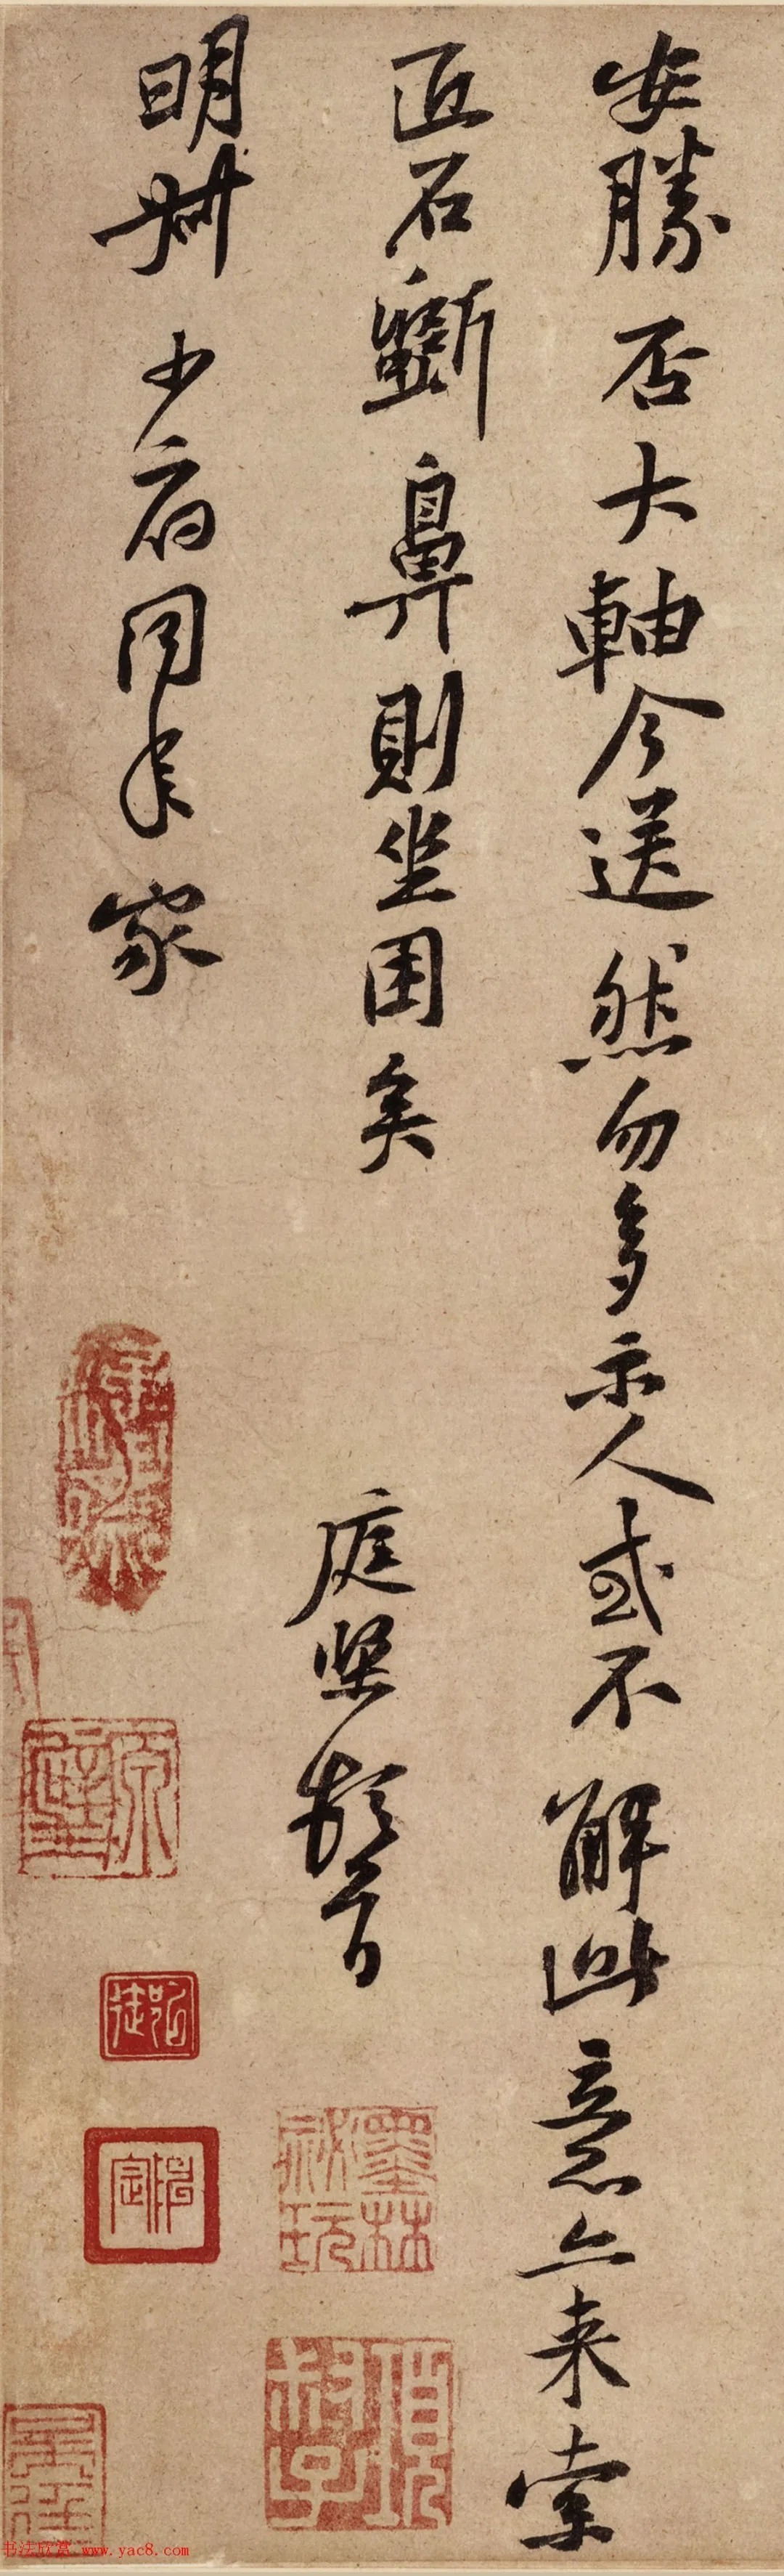 安勝否大軸今送然勿多示人或不解此意亦来索
匠石斵鼻則坐困矣
庭堅頓首
明州少府同年家
墨林祕玩
項元汴印
书法欣赏 www.yac8.com